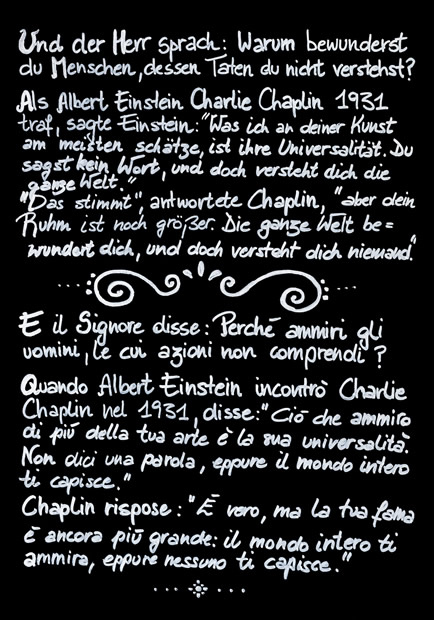 Und der Herr sprach: Warum bewunderst
du Menschen, dessen Taten du nicht verstehst?
Als Albert Einstein Charlie Chaplin 1931
traf, sagte Einstein: "Was ich an deiner Kunst
am meisten schätze, ist ihre Universalität. Du
sagst kein Wort, und doch versteht dich die
ganze Welt."
"Das stimmt", antwortete Chaplin, "aber dein
Ruhm ist noch größer. Die ganze Welt be=
wundert dich, und doch versteht dich niemand."
E il Signore disse: Perché ammiri gli
uomini, le cui azioni non comprendi?
Quando Albert Einstein incontrò Charlie
Chaplin nel 1931, disse: "Ciò che ammiro
di più della tua arte è la sua universalità.
Non dici una parola, eppure il mondo intero
ti capisce."
Chaplin rispose: "È vero, ma la tua fama
è ancora più grande: il mondo intero ti
ammira, eppure nessuno ti capisce."